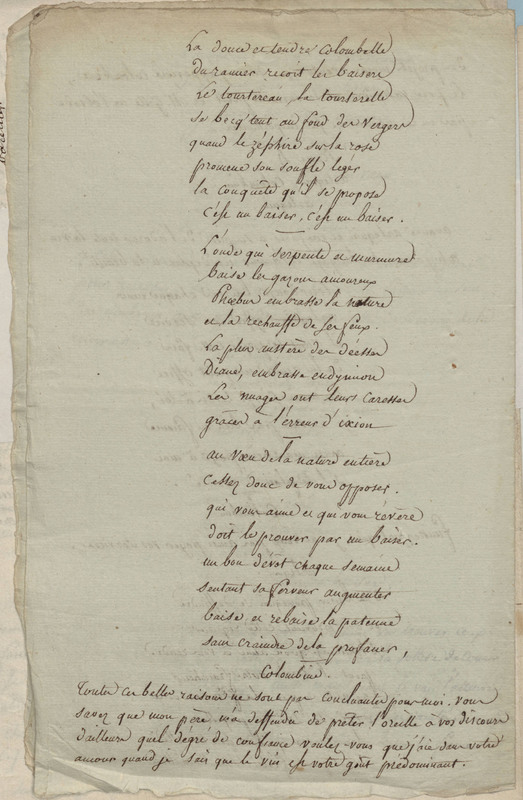 La douce et tendre Colombelle
du ramier recoit les baisers
Le tourtereau, la tourterelle
se becq'tent au fond des Vergers
quand le zéphire sur la rose
promene son soufle legér
la conquête qu'il se propose
c'est un baiser, c'est un baiser.
L'onde qui serpente et murmure
baise les gazons amoureux
Phœbus embrasse la nature
et la rechauffe de ses feux.
La plus austère des déesses
Diane, embrasse endymion
Les nuages ont leurs caresses
grâces a l'erreur d'ixion
au vœu de la nature entière
cessez donc de vous opposer.
qui vous aime et qui vous révère
doit le prouver par un baiser.
un bon dévot chaque semaine
sentant sa ferveur augmenter
baise et rebaise la patenne
sans craindre de la profaner,
Colombine.
Toutes ces belles raisons ne sont pas concluantes pour moi. vous
savez que mon père m'a deffendu de prêter l'oreille a vos discours
d'ailleurs quel dégré de confiance voulez-vous que j'aie dans votre
amour quand je sais que le vin est votre goût prédominant.